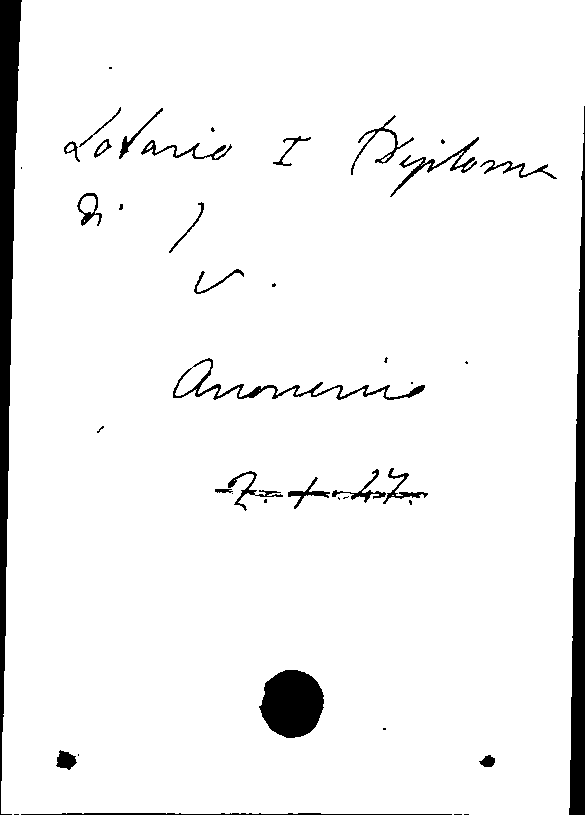 Lotario I Diploma
di )
v.
Anonimo
2. 1. 47.